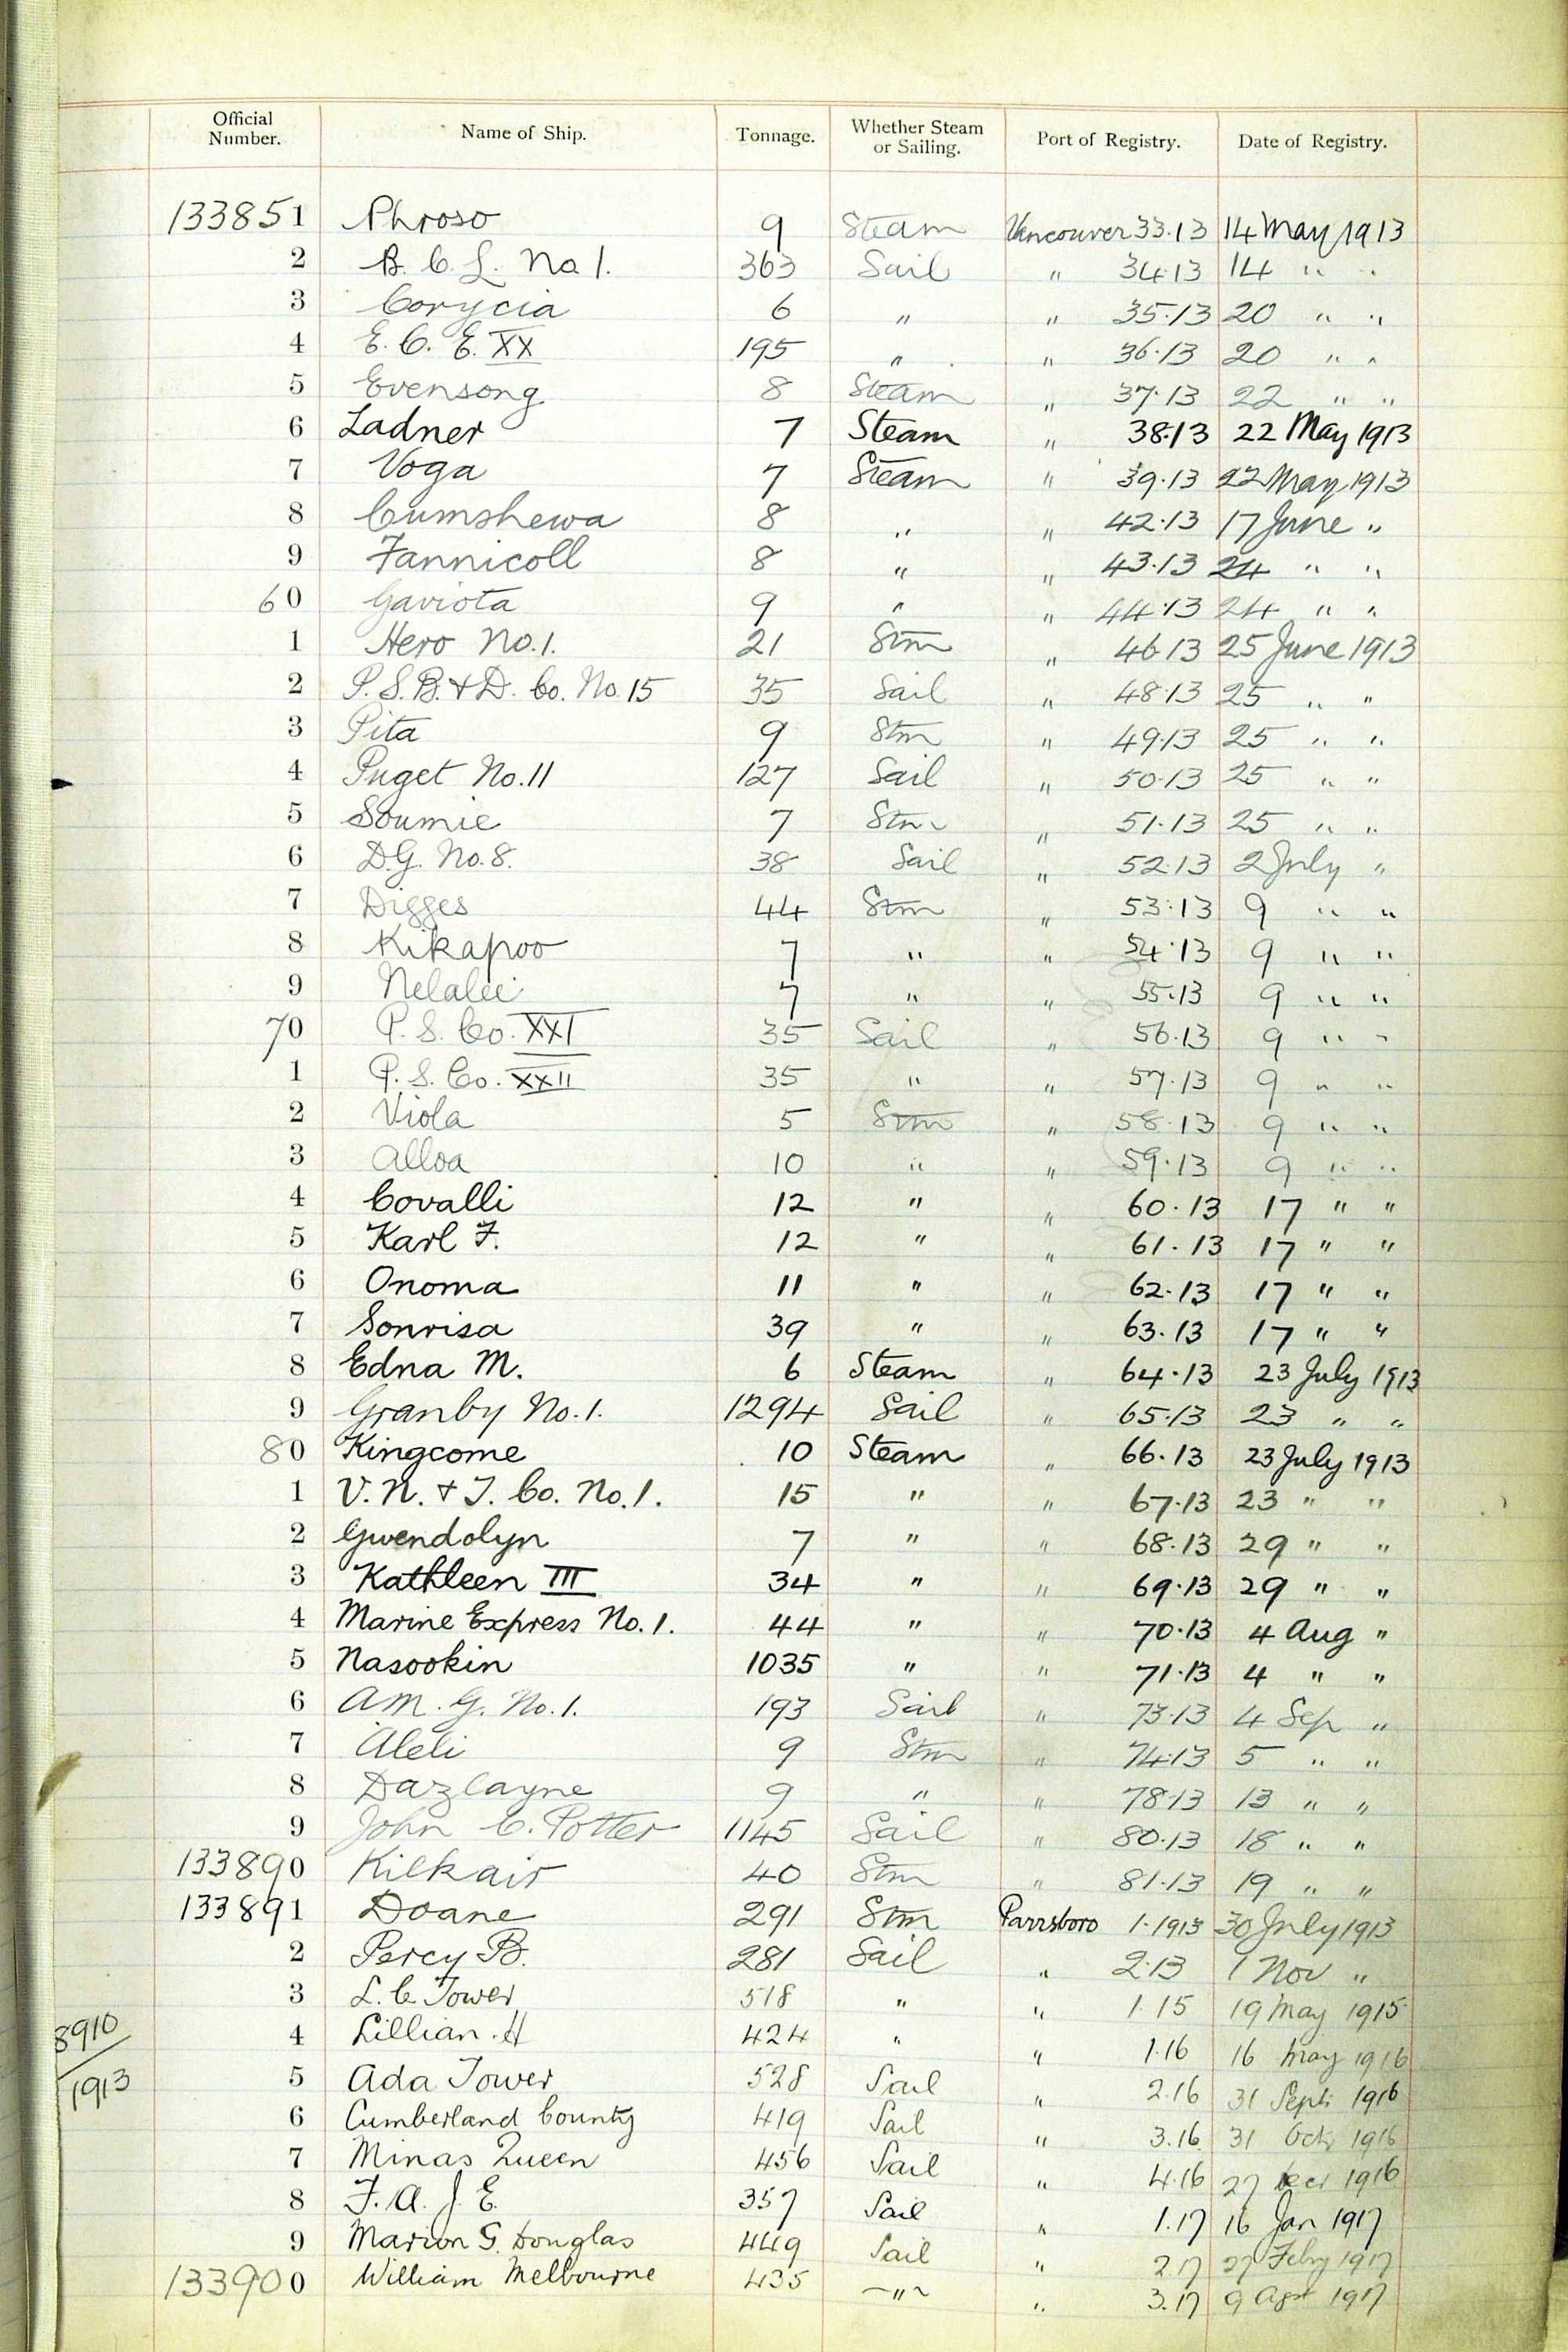 Official Number. Name of Ship. Tonnage. Whether Steam or Sailing. Port of Registry. Date of Registry.
133851 Phroso 9 Steam Vancouver 33.13 14 May 1913
2 B. C. L. No 1. 363 Sail " 34.13 14 " "
3 Corycia 6 " " 35.13 20 " "
4 E. C. E. XX 195 " " 36.13 20 " "
5 Evensong 8 Steam " 37.13 22 " "
6 Ladner 7 Steam " 38.13 22 May 1913
7 Voga 7 Steam " 39.13 22 May 1913
8 Cumshewa 8 " " 42.13 17 June "
9 Fannicoll 8 " " 43.13 24 " "
60 Gaviota 9 " " 44.13 24 " "
1 Hero No. 1. 21 Stm " 46.13 25 June 1913
2 P. S. B. & D. Co. No. 15 35 Sail " 48.13 25 " "
3 Pita 9 Stm " 49.13 25 " "
4 Puget No. 11 127 Sail " 50.13 25 " "
5 Soumie 7 Stm " 51.13 25 " "
6 D.G. No. 8. 38 Sail " 52.13 2 July "
7 Digges 44 Stm " 53.13 9 " "
8 Kikapoo 7 " " 54.13 9 " "
9 Nelalee 7 " " 55.13 9 " "
70 P. S. Co. XXI 35 Sail " 56.13 9 " "
1 P. S. Co. XXII 35 " " 57.13 9 " "
2 Viola 5 Stm " 58.13 9 " "
3 Alloa 10 " " 59.13 9 " "
4 Covalli 12 " " 60.13 17 " "
5 Karl F. 12 " " 61.13 17 " "
6 Onoma 11 " " 62.13 17 " "
7 Sonrisa 39 " " 63.13 17 " "
8 Edna M. 6 Steam " 64.13 23 July 1913
9 Granby No. 1. 1294 Sail " 65.13 23 " "
80 Kingcome 10 Steam " 66.13 23 July 1913
1 V. N. & T. Co. No. 1. 15 " " 67.13 23 " "
2 Gwendolyn 7 " " 68.13 29 " "
3 Kathleen III 34 " " 69.13 29 " "
4 Marine Express No. 1. 44 " " 70.13 4 Aug "
5 Nasookin 1035 " " 71.13 4 " "
6 A.M. G. No. 1. 193 Sail " 73.13 4 Sep "
7 Aleli 9 Stm " 74.13 5 " "
8 Dazlayne 9 " " 78.13 13 " "
9 John C. Potter 1145 Sail " 80.13 18 " "
133890 Kilkair 40 Stm " 81.13 19 " "
133891 Doane 291 Stm Parrsboro 1.1913 30 July 1913
2 Percy B. 281 Sail " 2.13 1 Nov "
3 L. C. Tower 518 " " 1.15 19 May 1915
8910
4 Lillian. H 424 " " 1.16 16 May 1916
1913
5 Ada Tower 528 Sail " 2.16 31 Sept 1916
6 Cumberland County 419 Sail " 3.16 31 Oct 1916
7 Minas Queen 456 Sail " 4.16 27 Dec 1916
8 F. A. J. E. 357 Sail " 1.17 16 Jan 1917
9 Marion G. Douglas 449 Sail " 2.17 27 Feby 1917
133900 William Melbourne 435 " " 3.17 9 1917